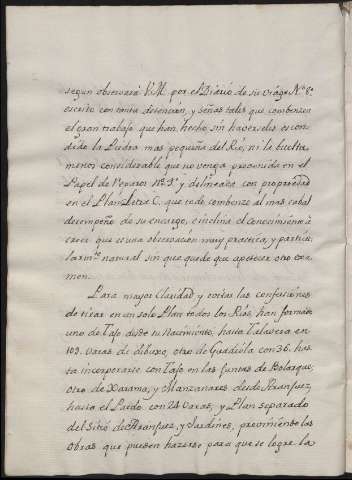 segun observará V.M. por el Diario de su viage Nº 8º
escrito con tanta detencion, y señas tales que combencen
el gran trabajo que han hecho, sin haverseles escon-
dido la Piedra mas pequeña del Rio, ni la buelta
menos considerable que no venga prevenida en el
Papel de Reparos nº 9º y delineada con propriedad
en el Plan Letra C. que todo combence al mas cabal
desempeño de su encargo, è inclina el conocimiento à
creer que es una observacion muy practica, y particu-
larmte natural sin que quede que apetecer otro exa-
men.
Para mayor Claridad, y evitar las confusiones
de tirar en un solo Plan todos los Rios, han formado
uno de Tajo desde su Nacimiento, hasta Talavera en
109. varas de dibuxo, otro de Guadiela con 36. has-
ta incorporarse con Tajo en las Juntas de Bolarque;
otro de Xarama, y Manzanares desde Aranjuez,
hasta el Pardo con 24 varas, y Plan separado
del Sitio de Aranjuez, y Jardines, previniendo las
Obras que pueden hazerse para que se logre la